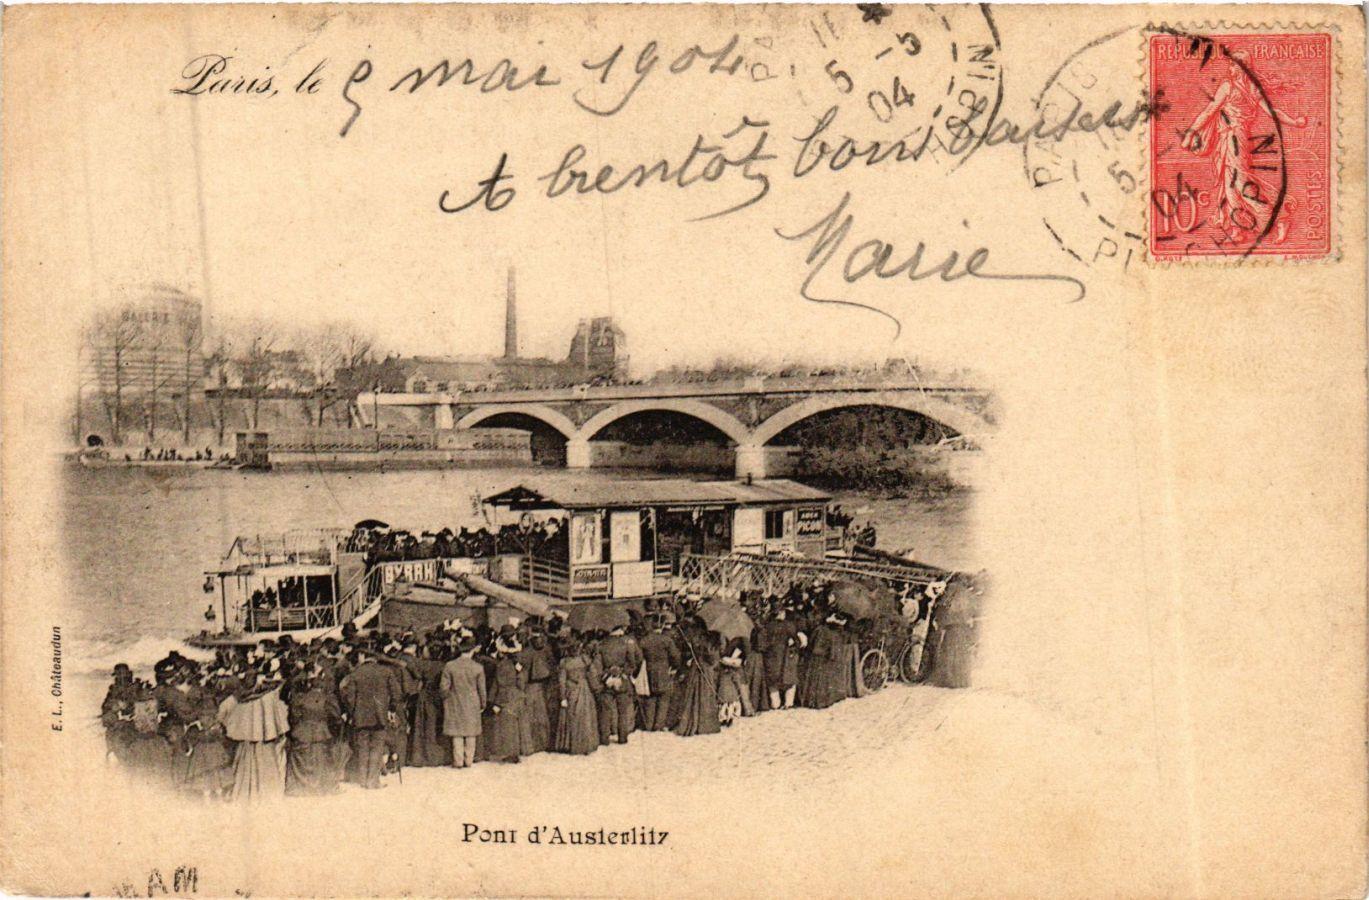 Paris, le 5 mai 1904
A bientôt bons baisers
Marie
RÉPUBLIQUE FRANÇAISE
10c
POSTES
O. ROTY
E. MOUCHON
PARIS
5 - 5
04
PL. CHOPIN
11
5 - 5
04
CHOPIN
BYRRH
AMER
PICON
E. L., Châteaudun
Pont d'Austerlitz
AM